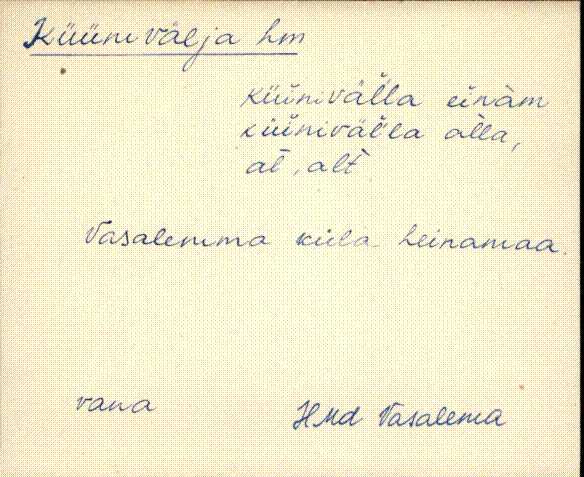 Küünivälja hm
küünivälla einäm
küünivälla alla,
al, alt
Vasalemma küla heinamaa.
vana
HMd Vasalema